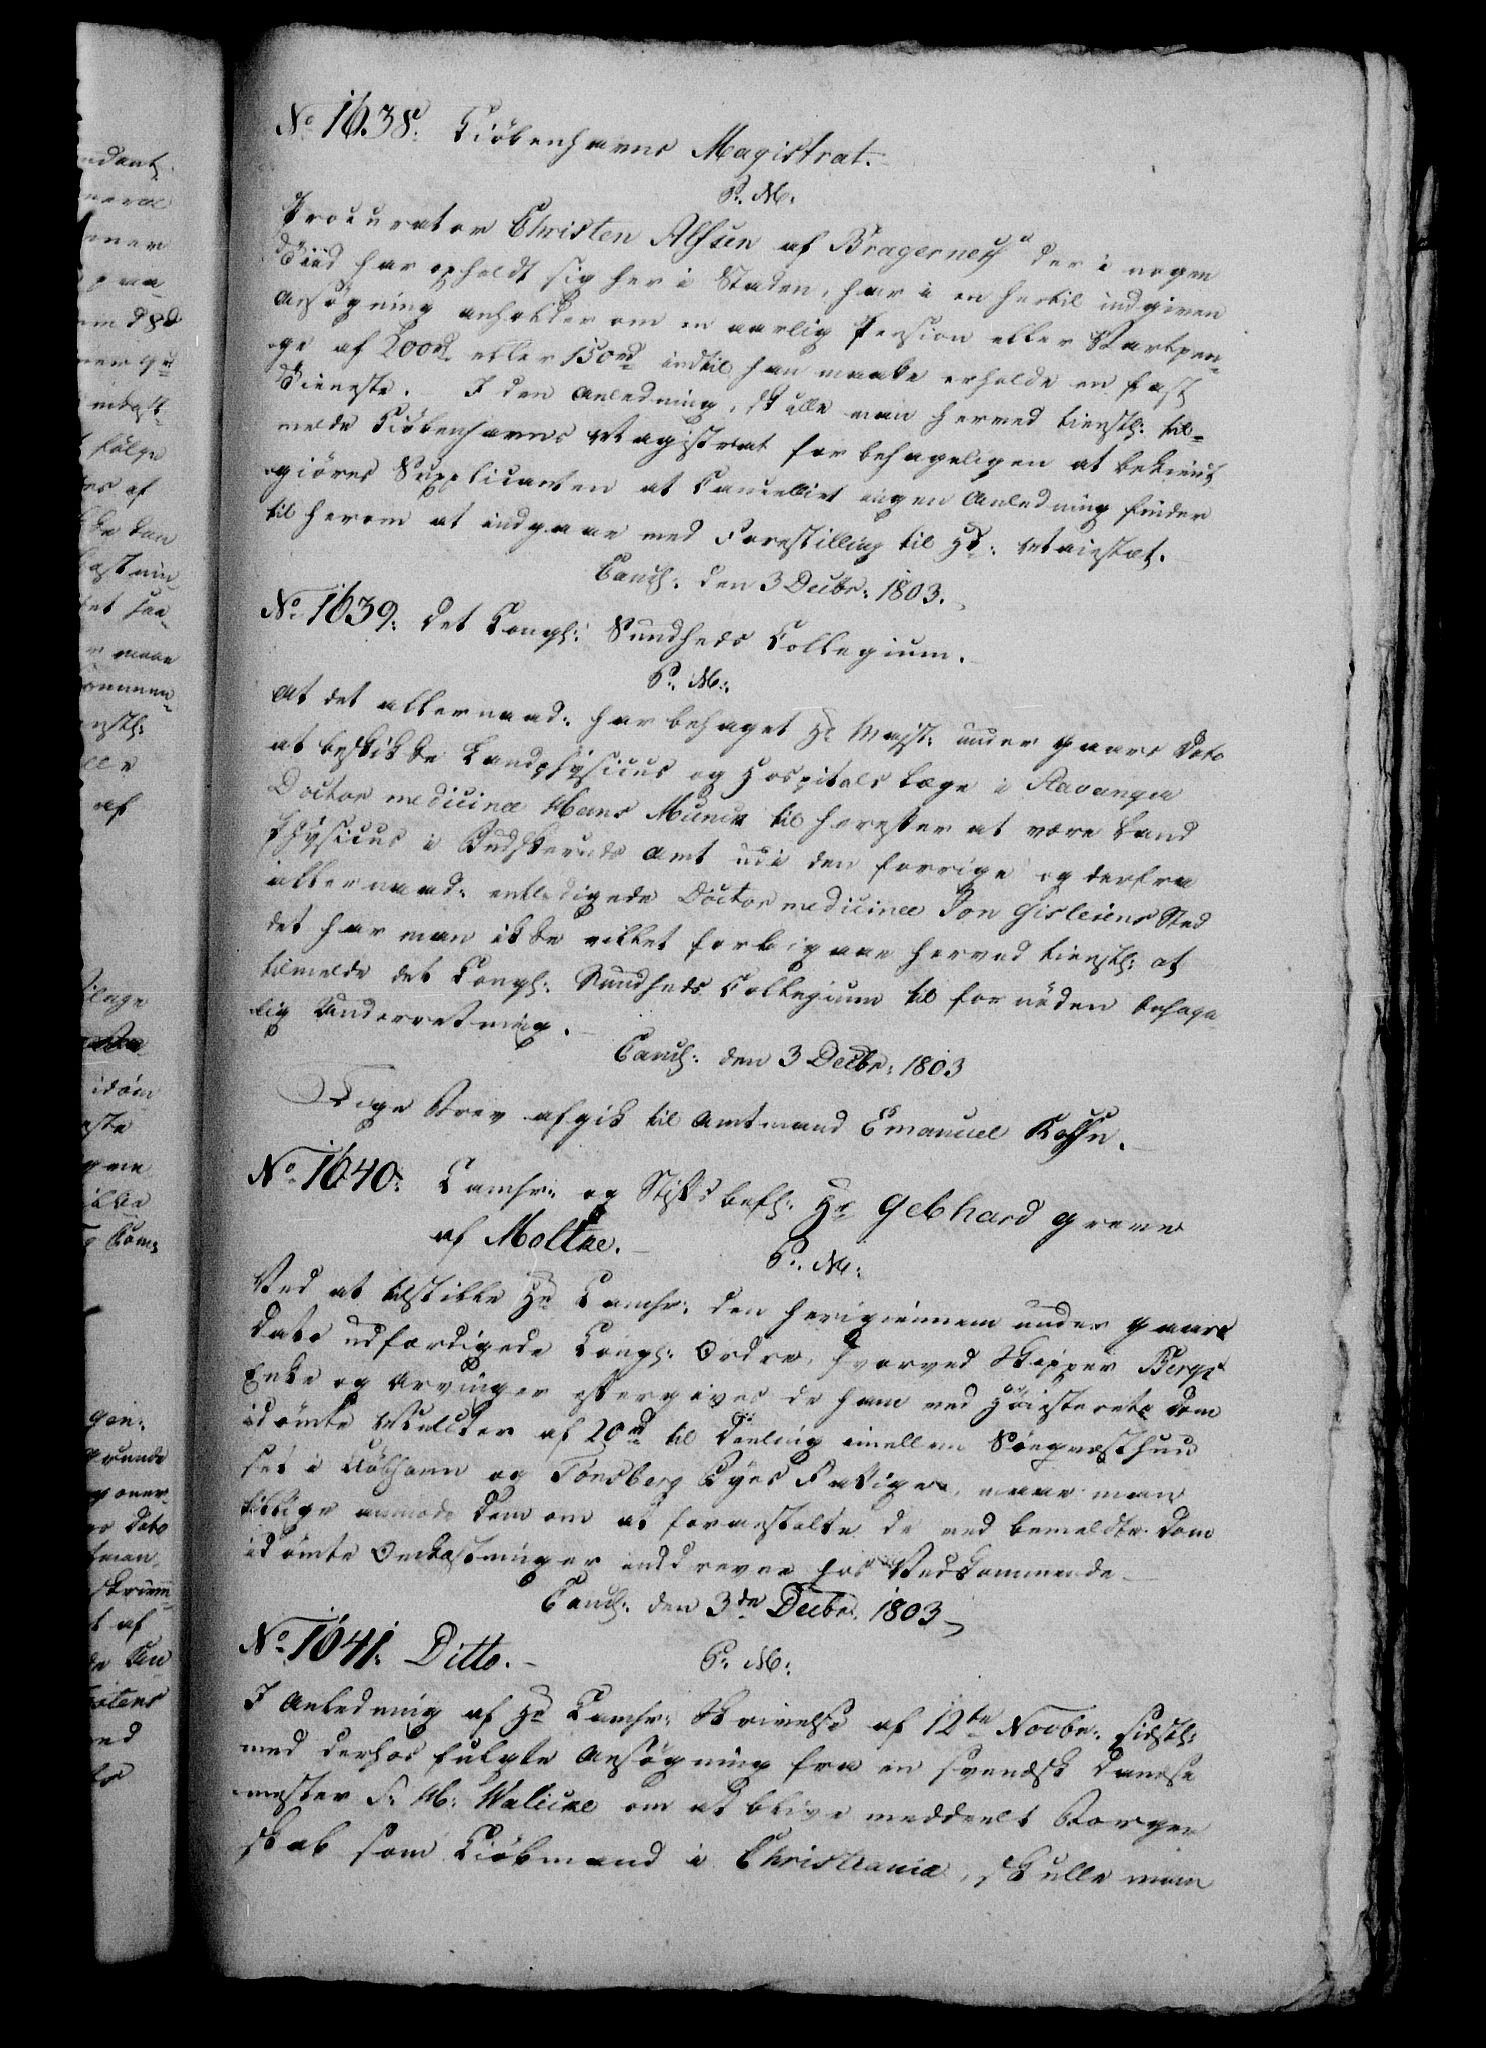 No 1638. Kiöbenhavns Magistrat.
P. M.
Procurator Christen Alfsen af Bragernes der i nogen
Tiid har opholdt sig her i Staden, har i en hertil indgiven
Ansøgning anholder om en aarlig Pension eller Vartpen-
ge af 200rd eller 150rd indtil han maatte erholde en fast
Tieneste. I den Anledning, skulle man herved tienstl: til-
melde Kiöbenhavns Magistrat for behageligen at bekiendt-
giöres Supplicanten at Cancelliet ingen Anledning finder
til herom at indgaae med Forestilling til Hs: Maiestæt.
Canc: den 3 Decbr: 1803.
No 1639: Det Kongl: Sundheds Collegium.
P: M:
At det allernaad: har behaget Hs Majst: under Gaars Dato
at beskikke Landphysicus og Hospitals læge i Stavanger
Doctor medicinæ Hans Munch til herefter at være Land
physicus i Budskeruds Amt udi den forrige og derfra
allernaad: entledigede Doctor medicinæ Jon Gislesens Sted
det har man ikke villet forbigaae herved tienstl: at
tilmelde det Kongl: Sundheds Collegium til fornöden behage-
lig Underretning.
Canc: den 3 Decbr: 1803
Lige Brev afgik til Amtmand Emanuel
No 1640: Camhr: og Stiftsbefl: Hr Gebhard Greve
af Moltke.
P: M:
Ved at tilstille Hr Camhr: den herigiennem under Gaars
Dato udfærdigede Kongl: Ordre, hvorved Skipper Bergs
Enke og Arvinger eftergives de ham ved Höiesterets Dom
idömte Mulcter af 20rd til Deeling imellem Söeqvæsthuu
set i Kiöbhavn og Tonsberg Byes Fattige, maae man
tillige anmode Dem om at foranstalte de ved bemeldte Dom
idömte Omkostninger inddrevne hos Vedkommende
Canc: den 3de Decbr: 1803
No 1641: Ditto.
P: M:
I Anledning af Hr Camhr: Skrivelse af 12te Novbr: sidstl:
med derhos fulgte Ansøgning fra en svensk Dandse
mester om at blive meddeelt Borger
skab som Kiöbmand i Christiania, skulle man